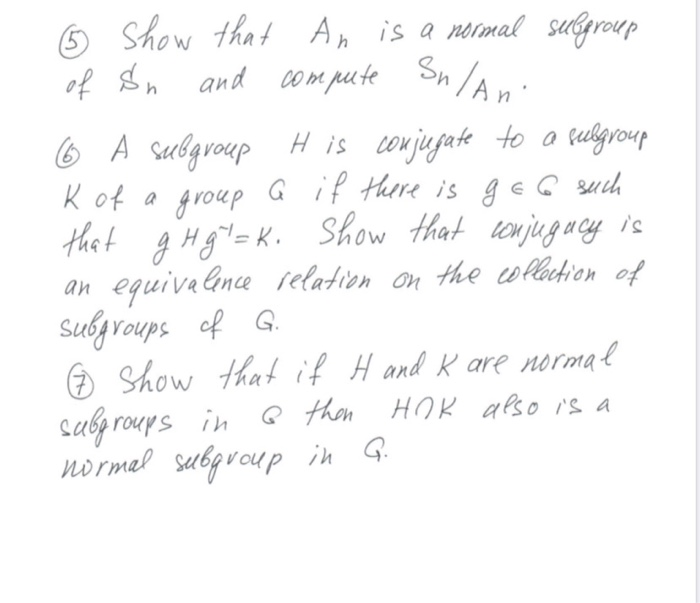 ⑤ Show that An is a normal subgroup
of Sn and compute Sn/An.
⑥ A subgroup H is conjugate to a subgroup
K of a group G if there is g ∈ G such
that gHg⁻¹=K. Show that conjugacy is
an equivalence relation on the collection of
subgroups of G.
⑦ Show that if H and K are normal
subgroups in G then H∩K also is a
normal subgroup in G.